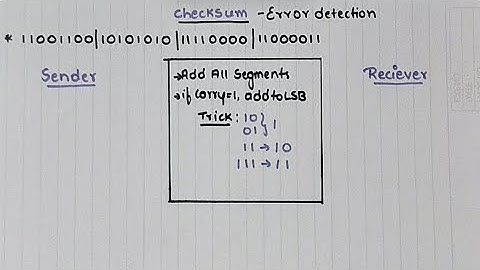 Checksum - Error detection
* 11001100|10101010|11110000|11000011
Sender
→Add All Segments
→if carry=1, add to LSB
Trick: 10
01 } 1
11 → 10
111 → 11
Reciever